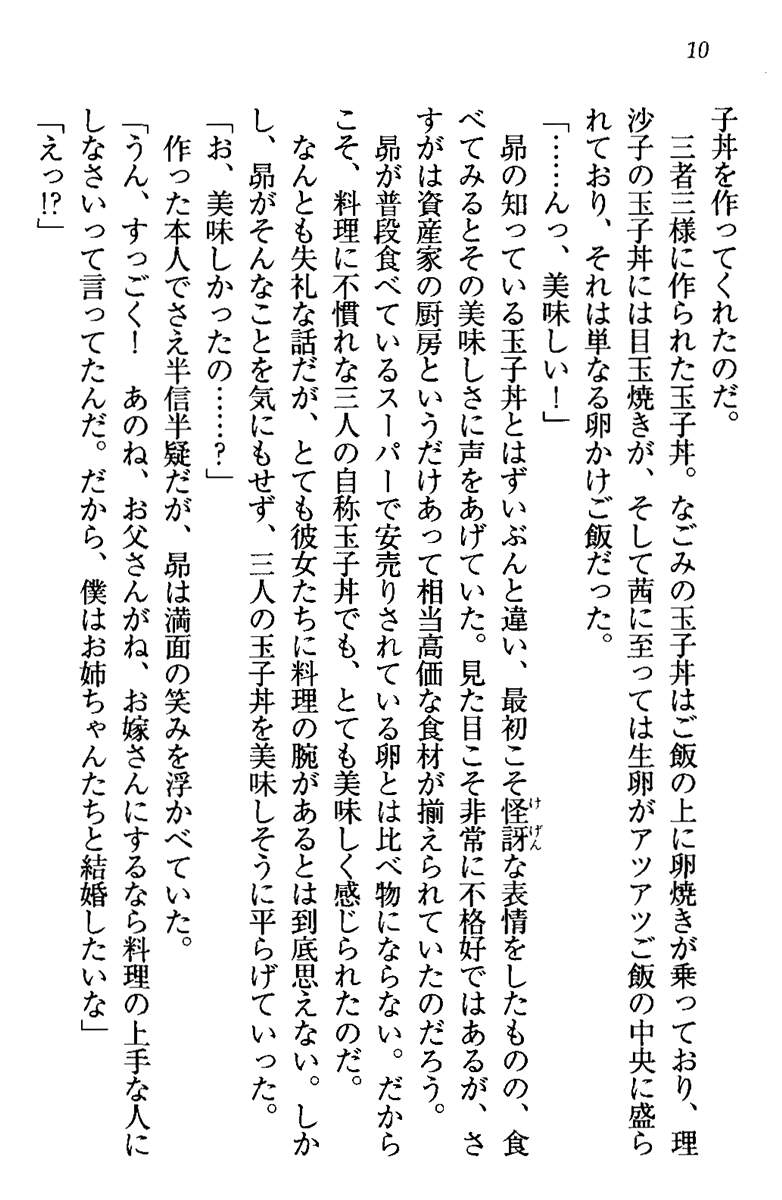 10
子丼を作ってくれたのだ。
　三者三様に作られた玉子丼。なごみの玉子丼はご飯の上に卵焼きが乗っており、理
沙子の玉子丼には目玉焼きが、そして茜に至っては生卵がアツアツご飯の中央に盛ら
れており、それは単なる卵かけご飯だった。
「……んっ、美味しい！」
　昴の知っている玉子丼とはずいぶんと違い、最初こそ怪訝な表情をしたものの、食
べてみるとその美味しさに声をあげていた。見た目こそ非常に不格好ではあるが、さ
すがは資産家の厨房というだけあって相当高価な食材が揃えられていたのだろう。
　昴が普段食べているスーパーで安売りされている卵とは比べ物にならない。だから
こそ、料理に不慣れな三人の自称玉子丼でも、とても美味しく感じられたのだ。
　なんとも失礼な話だが、とても彼女たちに料理の腕があるとは到底思えない。しか
し、昴がそんなことを気にもせず、三人の玉子丼を美味しそうに平らげていった。
「お、美味しかったの……？」
　作った本人でさえ半信半疑だが、昴は満面の笑みを浮かべていた。
「うん、すっごく！　あのね、お父さんがね、お嫁さんにするなら料理の上手な人に
しなさいって言ってたんだ。だから、僕はお姉ちゃんたちと結婚したいな」
「えっ!?」